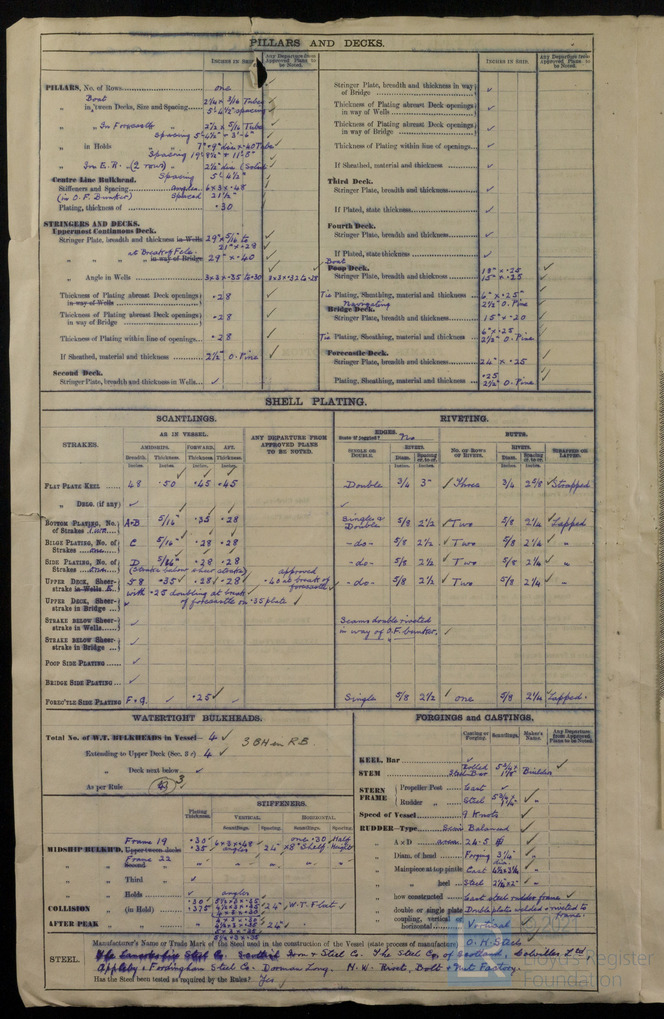 PILLARS AND DECKS.
INCHES IN SHIP.
Any Departure from Approved Plans to be Noted.
PILLARS, No. of Rows one
Boat
" in 'tween Decks, Size and Spacing 2¼ x 3/16 Tube
5'-4½" spacing
" In Forecastle " 2½ x 5/16 Tube
Spacing 5'-4½" + 3'-6"
" in Holds 7" + 9" dia x .40 Tube
Spacing 19'-8½" + 11'-8"
" In E.R. (2 rows) " 2½" dia (Solid
Spacing 5'-4½"
Centre Line Bulkhead.
Stiffeners and Spacing angles 6 x 3 x .48
(in O.F. Bunker) Spaced 21½"
Plating, thickness of .30
STRINGERS AND DECKS.
Uppermost Continuous Deck.
Stringer Plate, breadth and thickness in Wells
at Break of Fcle.
" " " in way of Bridge 29" x .40
" Angle in Wells 3x3x.35 to .30 3x3x.32 to .28
Thickness of Plating abreast Deck openings in way of Wells .28
Thickness of Plating abreast Deck openings in way of Bridge .28
Thickness of Plating within line of openings .28
If Sheathed, material and thickness 2½" O. Pine
Second Deck.
Stringer Plate, breadth and thickness in Wells
INCHES IN SHIP.
Any Departure from Approved Plans to be Noted.
Stringer Plate, breadth and thickness in way of Bridge
Thickness of Plating abreast Deck openings in way of Wells
Thickness of Plating abreast Deck openings in way of Bridge
Thickness of Plating within line of openings
If Sheathed, material and thickness
Third Deck.
Stringer Plate, breadth and thickness
If Plated, state thickness
Fourth Deck.
Stringer Plate, breadth and thickness
If Plated, state thickness
Boat
Poop Deck.
Stringer Plate, breadth and thickness 18" x .25
15" x .25
Tie Plating, Sheathing, material and thickness 6" x .25"
2½" O. Pine
Navigating
Bridge Deck.
Stringer Plate, breadth and thickness 15" x .20
Tie Plating, Sheathing, material and thickness 6" x .25
2½" O. Pine
Forecastle Deck.
Stringer Plate, breadth and thickness 24" x .25
Plating, Sheathing, material and thickness .25
2½" O. Pine
SHELL PLATING.
SCANTLINGS.
RIVETING.
STRAKES.
AS IN VESSEL.
AMIDSHIPS. FORWARD. AFT.
Breadth. Thickness. Thickness. Thickness.
Inches. Inches. Inches. Inches.
ANY DEPARTURE FROM APPROVED PLANS TO BE NOTED.
EDGES.
State if joggled? No
SINGLE OR DOUBLE.
RIVETS.
Diam.
BUTTS.
NO. OF ROWS OF RIVETS.
RIVETS.
Diam.
STRAPPED OR LAPPED.
FLAT PLATE KEEL 48 .50 .45 .45 Double 3/4 3" Three 3/4 2 5/8 Strapped
" DBLG. (if any)
BOTTOM PLATING, No. of Strakes two A+B 5/16" .35 .28 Single & Double 5/8 2½ Two 5/8 2¼ Lapped
BILGE PLATING, No. of Strakes one C 5/16" .28 .28 -do- 5/8 2½ Two 5/8 2¼ "
SIDE PLATING, No. of Strakes D .28 .28 -do- 5/8 2½ Two 5/8 2¼ "
(Strake below sheer strake)
UPPER DECK, Sheerstrake in Wells 58 .35 .28 .28 approved .40 at break of forecastle -do- 5/8 2½ Two 5/8 2¼ "
with .25 doubling at break
of forecastle on .35 plate
UPPER DECK, Sheerstrake in Bridge
STRAKE BELOW Sheerstrake in Wells
Seams double riveted
in way of O.F. bunker.
STRAKE BELOW Sheerstrake in Bridge
POOP SIDE PLATING
BRIDGE SIDE PLATING
FORE'C'LE SIDE PLATING F+G. .25 Single 5/8 2½ one 5/8 2¼ Lapped.
WATERTIGHT BULKHEADS.
Total No. of W.T. BULKHEADS in Vessel 4 3 BH in R.B
Extending to Upper Deck (Sec. 3 c) 4
" Deck next below
As per Rule 3
STIFFENERS.
Plating Thickness.
VERTICAL. HORIZONTAL.
Scantlings. Spacing. Scantlings. Spacing.
MIDSHIP BULKH'D. Frame 19 Upper 'tween decks .30 .35 6 x 3 x .48 angles 24" one .30 x 8" Shelf Half Height
" Frame 22 Second " " " " " "
" Third "
" Holds
COLLISION " (in Hold) .30 .375 angles 24" W.T. Flat
AFTER PEAK " " 24"
FORGINGS and CASTINGS.
Casting or Forging.
Scantlings.
Maker's Name.
Any Departure from Approved Plans to be Noted.
KEEL, Bar
STEM Rolled Steel Bar 5¾ x 1⅛ Builders
STERN FRAME
Propeller Post Cast
Rudder " Steel "
Speed of Vessel 9 Knots
RUDDER—Type Semi Balanced
" A x D 24.5
" Diam. of head Forging 3¼" dia. "
" Mainpiece at top pintle Cast "
" " heel Steel "
" how constructed Cast steel rudder frame
" double or single plate Double plates welded & riveted to frame.
" coupling, vertical or horizontal Vertical
STEEL.
Manufacturer's Name or Trade Mark of the Steel used in the construction of the Vessel (state process of manufacture) O.H. Steel
The Lancashire Steel Co. Scottish Iron & Steel Co. The Steel Co of Scotland. Colvilles Ltd
Appleby & Frodingham Steel Co. Dorman Long. N.W. Rivet, Bolt & Nut Factory.
Has the Steel been tested as required by the Rules? Yes
Lloyd's Register
Foundation